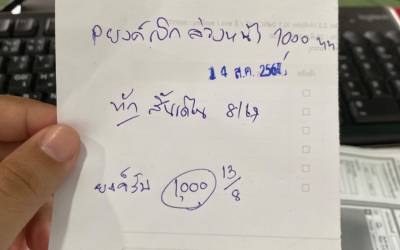 ยงค์เบิกล่วงหน้า 1000 บาท
14 ส.ค. 2567
หัก สิ้นเดือน 8/67
ยงค์รับ 1,000 13/8